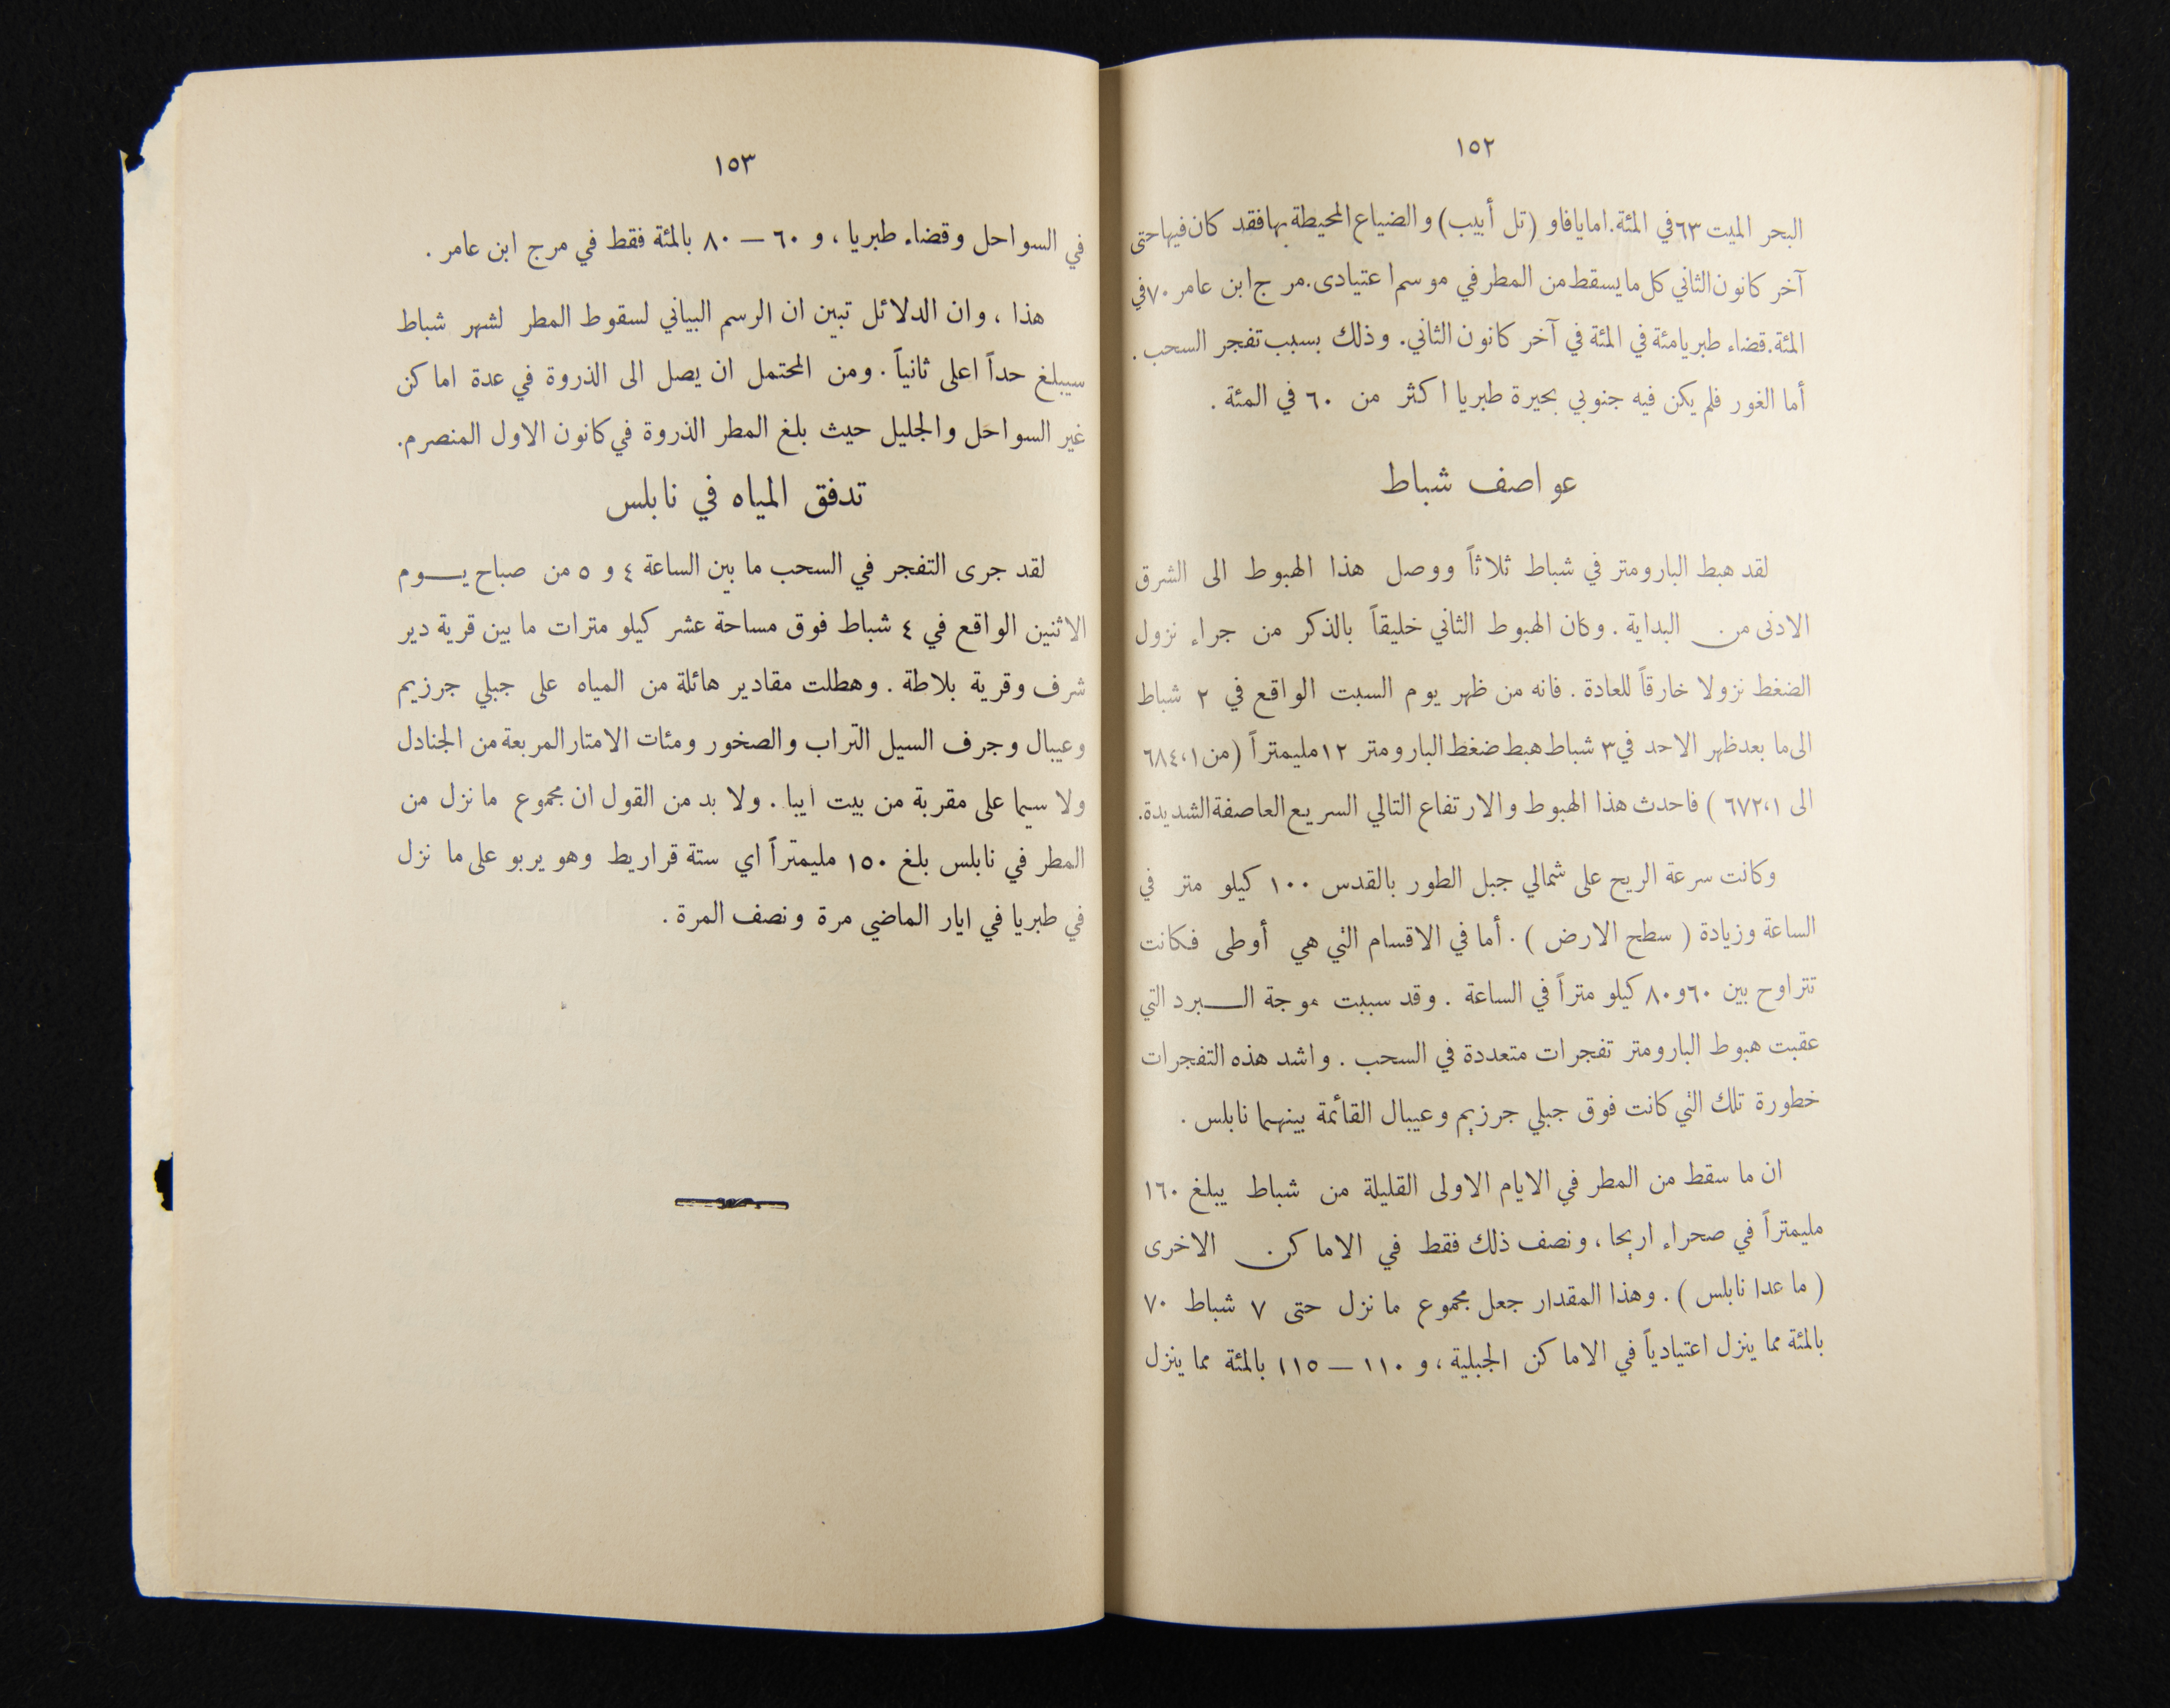 ١٥٢
البحر الميت ٦٣ في المئة. اما يافا و (تل أبيب) والضياع المحيطة بها فقد كان فيها حتى
آخر كانون الثاني كل ما يسقط من المطر في موسم اعتيادى. مرج ابن عامر ٧٠ في
المئة. قضاء طبريا مئة في المئة في آخر كانون الثاني. وذلك بسبب تفجر السحب.
أما الغور فلم يكن فيه جنوبي بحيرة طبريا اكثر من ٦٠ في المئة.
عواصف شباط
لقد هبط البارومتر في شباط ثلاثاً ووصل هذا الهبوط الى الشرق
الادنى من البداية. وكان الهبوط الثاني خليقاً بالذكر من جراء نزول
الضغط نزولا خارقاً للعادة. فانه من ظهر يوم السبت الواقع في ٢ شباط
الى ما بعد ظهر الاحد في ٣ شباط هبط ضغط البارومتر ١٢ مليمتراً (من ٦٨٤،١
الى ٦٧٢،١) فاحدث هذا الهبوط والارتفاع التالي السريع العاصفة الشديدة.
وكانت سرعة الريح على شمالي جبل الطور بالقدس ١٠٠ كيلو متر في
الساعة وزيادة (سطح الارض). أما في الاقسام التي هي أوطى فكانت
تتراوح بين ٦٠ و ٨٠ كيلو متراً في الساعة. وقد سببت موجة البرد التي
عقبت هبوط البارومتر تفجرات متعددة في السحب. واشد هذه التفجرات
خطورة تلك التي كانت فوق جبلي جرزيم وعيبال القائمة بينهما نابلس.
ان ما سقط من المطر في الايام الاولى القليلة من شباط يبلغ ١٦٠
مليمتراً في صحراء اريحا، ونصف ذلك فقط في الاماكن الاخرى
(ما عدا نابلس). وهذا المقدار جعل مجموع ما نزل حتى ٧ شباط ٧٠
بالمئة مما ينزل اعتيادياً في الاماكن الجبلية، و ١١٠ — ١١٥ بالمئة مما ينزل
١٥٣
في السواحل وقضاء طبريا، و ٦٠ — ٨٠ بالمئة فقط في مرج ابن عامر.
هذا، وان الدلائل تبين ان الرسم البياني لسقوط المطر لشهر شباط
سيبلغ حداً اعلى ثانياً. ومن المحتمل ان يصل الى الذروة في عدة اماكن
غير السواحل والجليل حيث بلغ المطر الذروة في كانون الاول المنصرم.
تدفق المياه في نابلس
لقد جرى التفجر في السحب ما بين الساعة ٤ و ٥ من صباح يوم
الاثنين الواقع في ٤ شباط فوق مساحة عشر كيلو مترات ما بين قرية دير
شرف وقرية بلاطة. وهطلت مقادير هائلة من المياه على جبلي جرزيم
وعيبال وجرف السيل التراب والصخور ومئات الامتار المربعة من الجنادل
ولا سيما على مقربة من بيت ايبا. ولا بد من القول ان مجموع ما نزل من
المطر في نابلس بلغ ١٥٠ مليمتراً اي ستة قراريط وهو يربو على ما نزل
في طبريا في ايار الماضي مرة ونصف المرة.